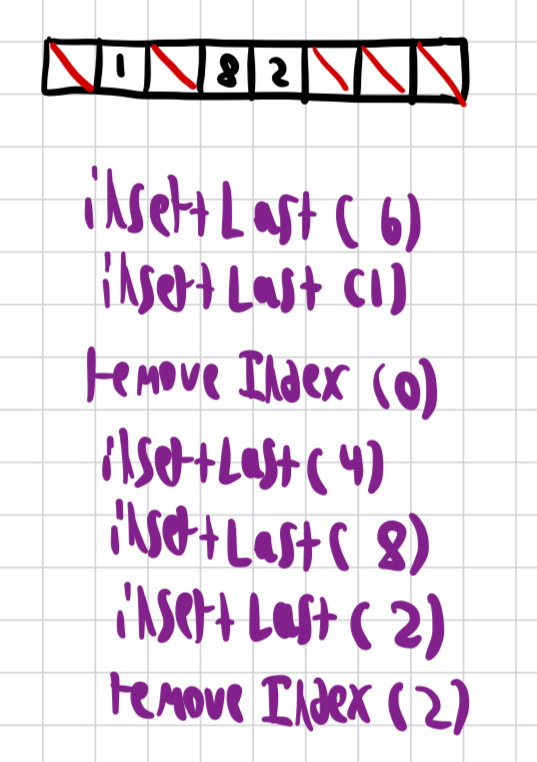 1 8 2
insertLast(6)
insertLast(1)
remove Index(0)
insertLast(4)
insertLast(8)
insertLast(2)
remove Index(2)